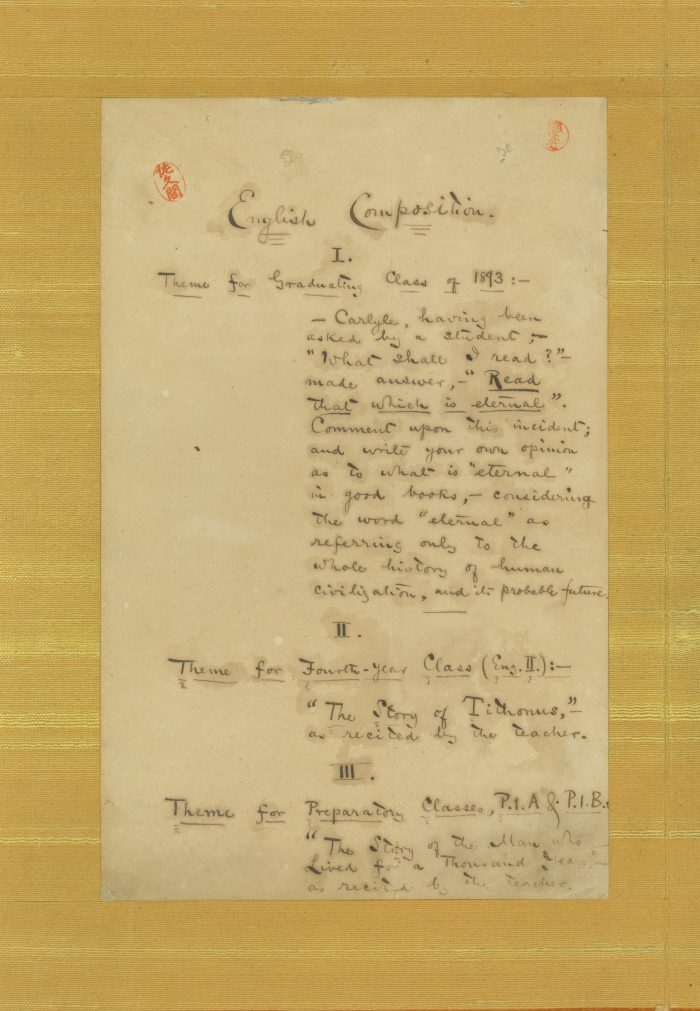 佐久間
English Composition.
I.
Theme for Graduating Class of 1893:—
— Carlyle, having been
asked by a student,—
"What shall I read?"—
made answer,—"Read
that which is eternal".
Comment upon this incident;
and write your own opinion
as to what is "eternal"
in good books,— considering
the word "eternal" as
referring only to the
whole history of human
civilization, and its probable future.
II.
Theme for Fourth-year Class (Eng. II.):—
"The Story of Tithonus,"—
as recited by the teacher.
III.
Theme for Preparatory Classes, P.I.A & P.I.B.:
"The Story of the Man who
Lived for a Thousand Years"—
as recited by the teacher.